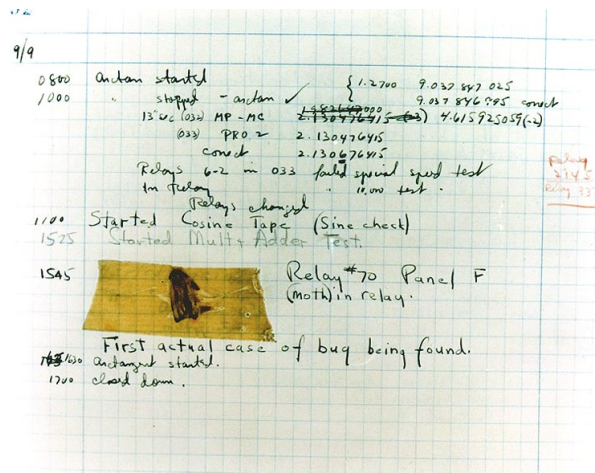 9/9
0800 Antan started { 1.2700 9.037 847 025
1000 " stopped - antan ✓ 9.037 846 995 conect
13"uc (032) MP - MC 1.982647000 2.130476415 (-3) 4.615925059(-2)
(033) PRO 2 2.130476415
conect 2.130676415
Relays 6-2 in 033 failed special speed test
In Relay " 10.000 test .
Relays changed
Relay
2145
Relay 33
1100 Started Cosine Tape (Sine check)
1525 Started Mult + Adder Test.
1545 Relay #70 Panel F
(moth) in relay.
First actual case of bug being found.
1630 antangent started.
1700 closed down.